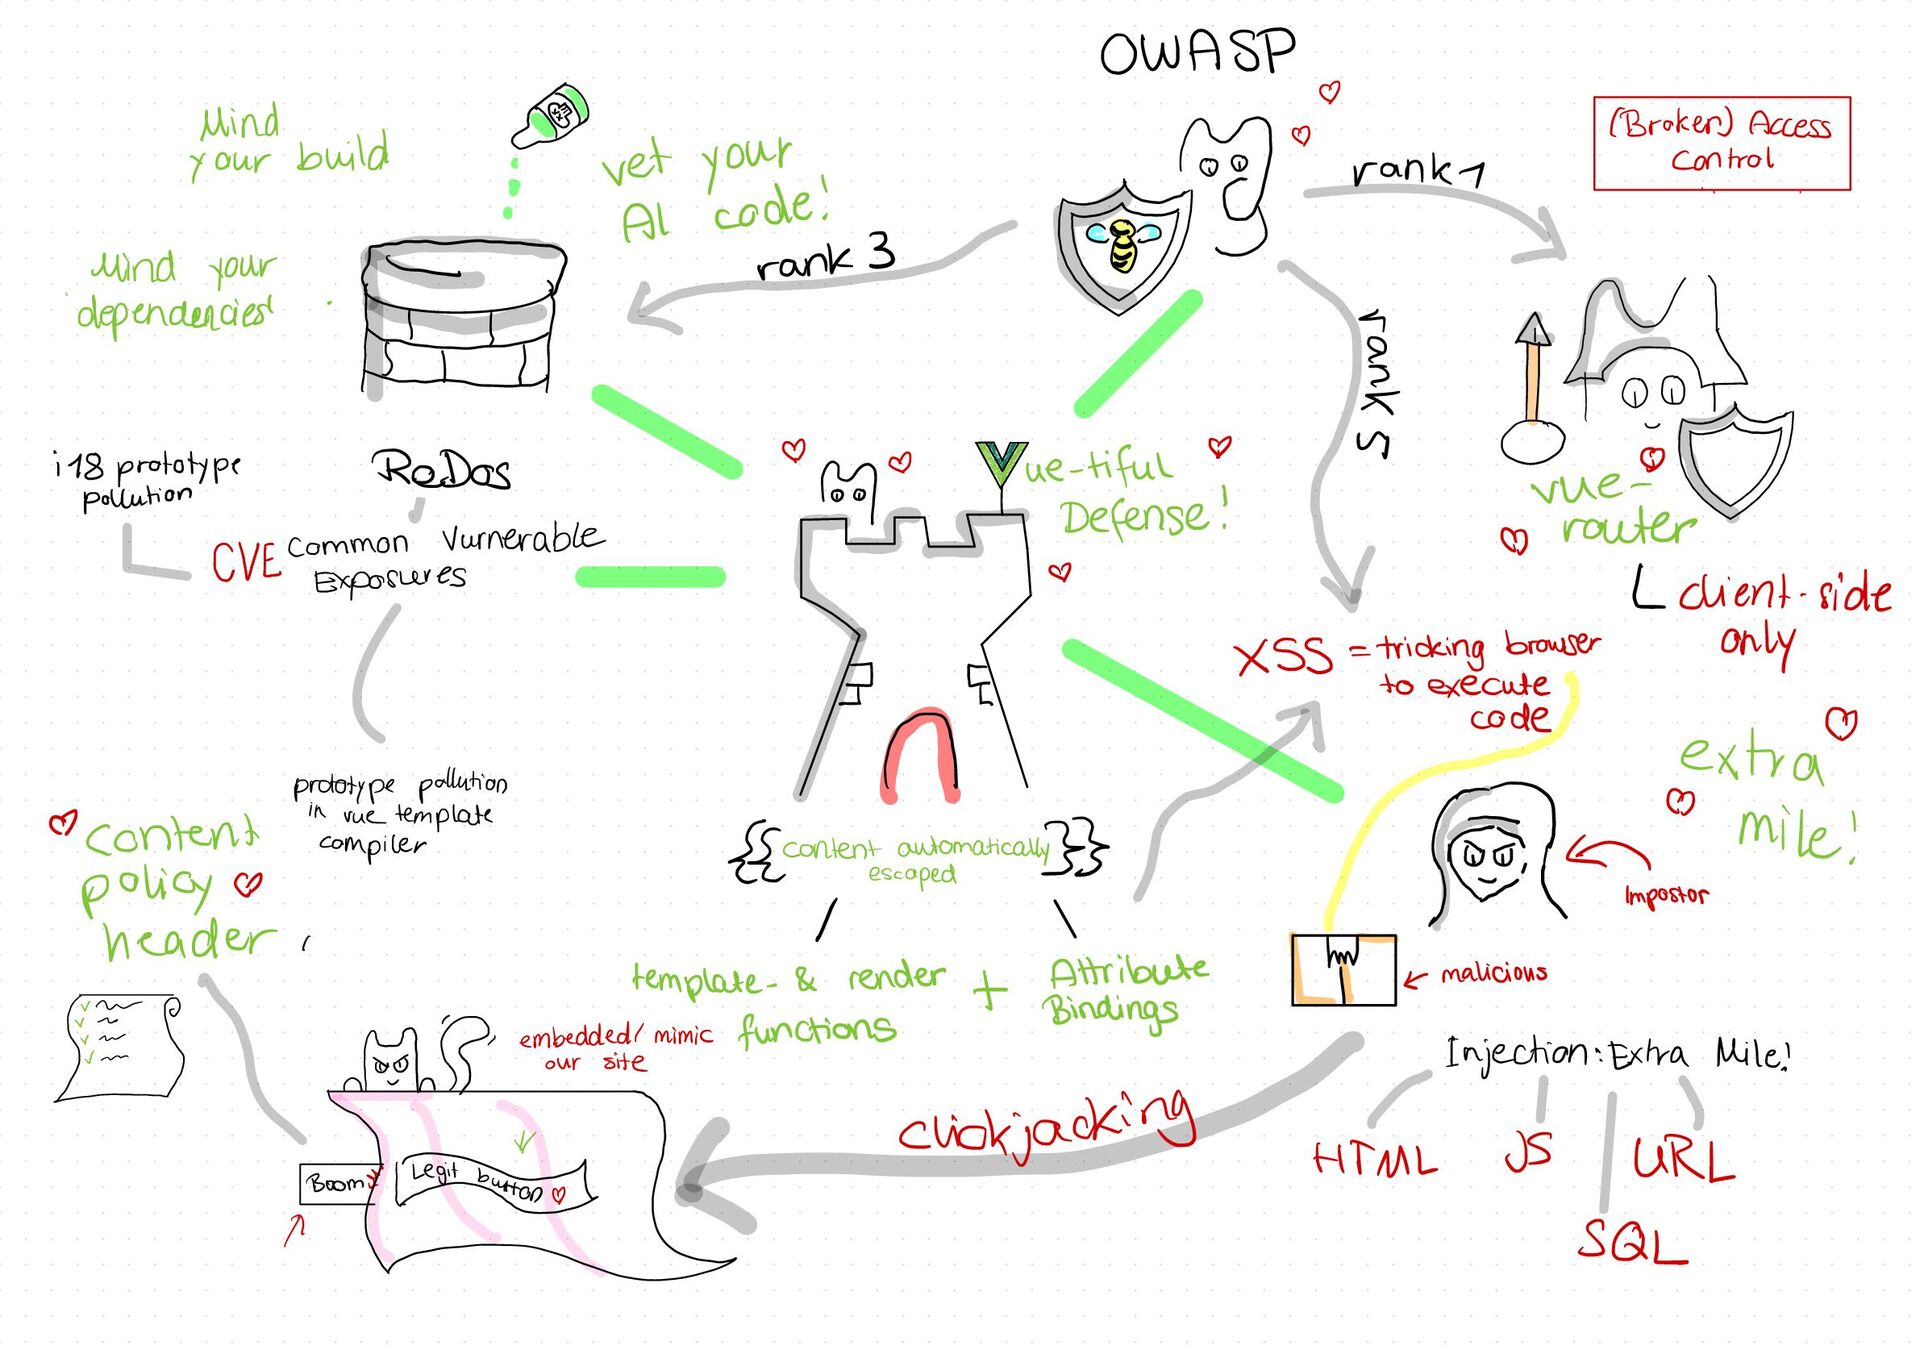 OWASP
(Broken) Access
Control
rank 1
rank 3
rank 5
Mind
your build
vet your
AI code!
Mind your
dependencies
i18 prototype
pollution
ReDos
CVE Common Vurnerable
Exposures
prototype pollution
in vue template
compiler
ue-tiful
Defense!
vue-
router
client-side
only
XSS = tricking browser
to execute
code
extra
mile!
Impostor
malicious
{{ content automatically }}
escaped
template- & render + Attribute
functions
Bindings
content
policy
header
embedded/mimic
our site
Boom
Legit button
clickjacking
Injection: Extra Mile!
HTML
JS
URL
SQL